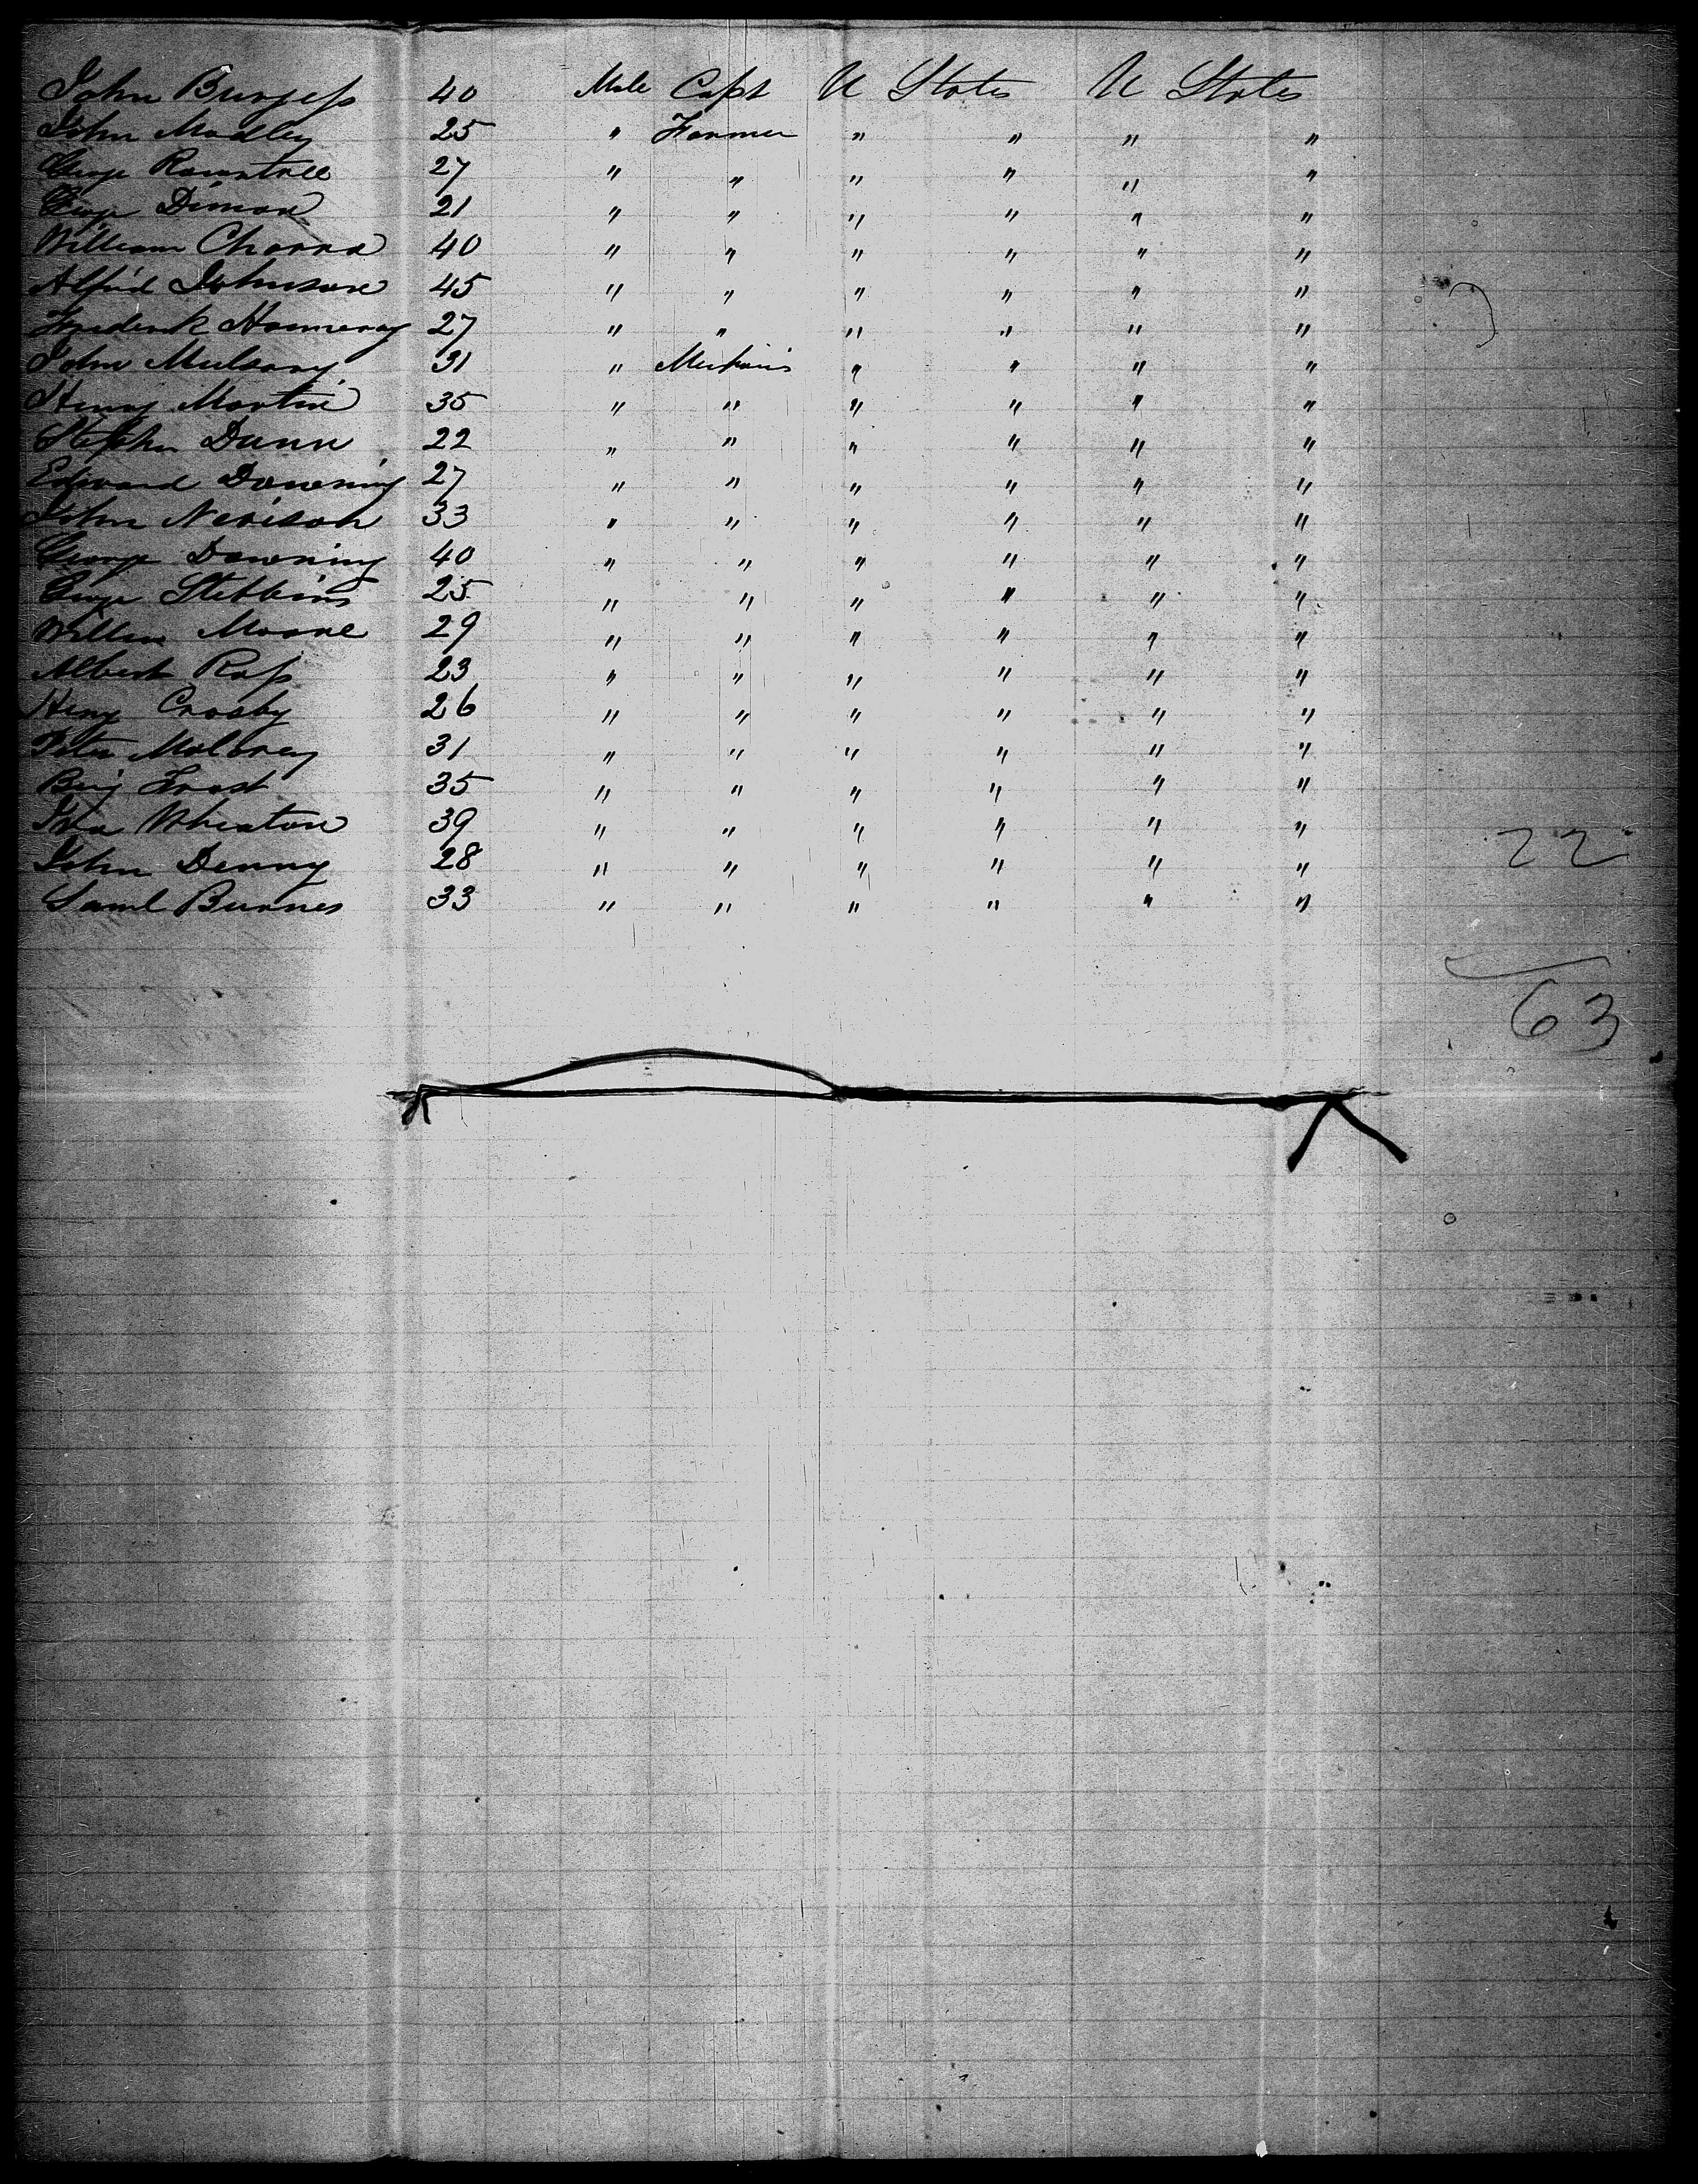 John Burgess 40 Male Capt U States U States
John Madley 25 " Farmer " " " "
George Rowntree 27 " " " " " "
George Dimon 21 " " " " " "
William 40 " " " " " "
Alfrid Johnson 45 " " " " " "
Frederick 27 " " " " " "
John 31 " " " " "
Henry Martin 35 " " " " " "
Stephen Dunn 22 " " " " " "
Edward Downing 27 " " " " " "
John Nevison 33 " " " " " "
George Downing 40 " " " " " "
George Stebbins 25 " " " " " "
William Moore 29 " " " " " "
Albert Ross 23 " " " " " "
Henry Crosby 26 " " " " " "
Peter Maloney 31 " " " " " "
Benj Frost 35 " " " " " "
Ira Wheaton 39 " " " " " "
22
John Denny 28 " " " " " "
Saml Burnes 33 " " " " " "
63